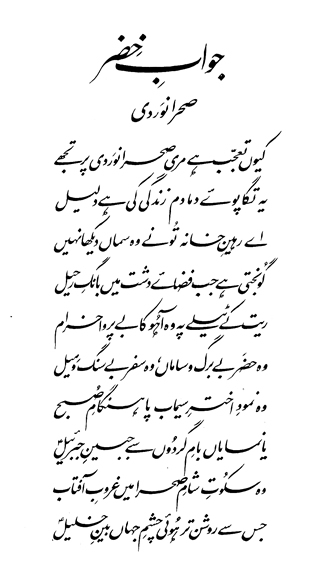 جوابِ خضر
صحرا نوَردی
کیوں تعجّب ہے مری صحرا نوَردی پر تجھے
یہ تگاپوئے دمادم زندگی کی ہے دلیل
اے رہینِ خانہ تُو نے وہ سماں دیکھا نہیں
گونجتی ہے جب فضائے دشت میں بانگِ رحیل
ریت کے ٹیلے پہ وہ آہُو کا بے پروا خرام
وہ حضَر بے برگ و ساماں، وہ سفر بے سنگ و میل
وہ نمودِ اخترِ سیماب پا ہنگامِ صُبح
یا نمایاں بامِ گردُوں سے جبینِ جبرئیلؑ
وہ سکُوتِ شامِ صحرا میں غروبِ آفتاب
جس سے روشن تر ہُوئی چشمِ جہاں بینِ خلیلؑ